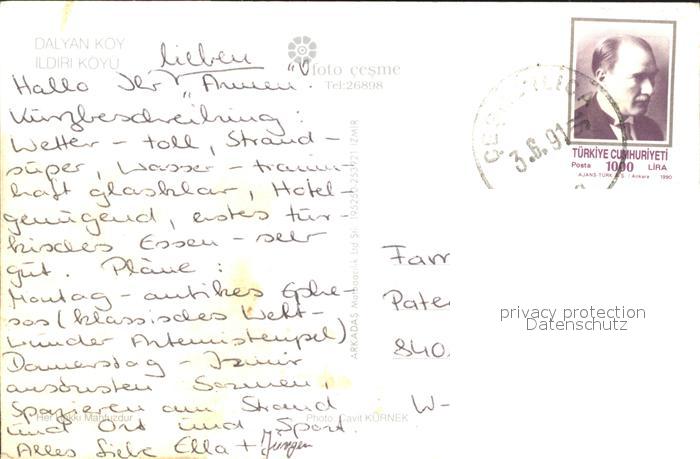 DALYAN KÖY
ILDIRI KÖYÜ
foto çeşme
Tel:26898
lieben
Hallo Ihr "Armen".
Kurzbeschreibung:
Wetter - toll, Strand -
super, Wasser - traum-
haft glasklar, Hotel -
genügend, erstes tür-
kisches Essen - sehr
gut. Pläne:
Montag - antikes Ephe-
sos (klassisches Welt-
wunder Artemistempel)
Donnerstag - Izmir
ansonsten Sonnen,
Spazieren am Strand
und Ort und Sport.
Alles Liebe Ella + Jürgen
Her Hakkı Mahfuzdur
Photo: Cavit KÜRNEK
ARKADAŞ Matbaacılık Ltd Şti.
İZMİR
3.6.91
TÜRKİYE CUMHURİYETİ
Posta 1000 LİRA
AJANS-TÜRK A.Ş. / Ankara 1990
Fam
Pate
840
W-
privacy protection
Datenschutz